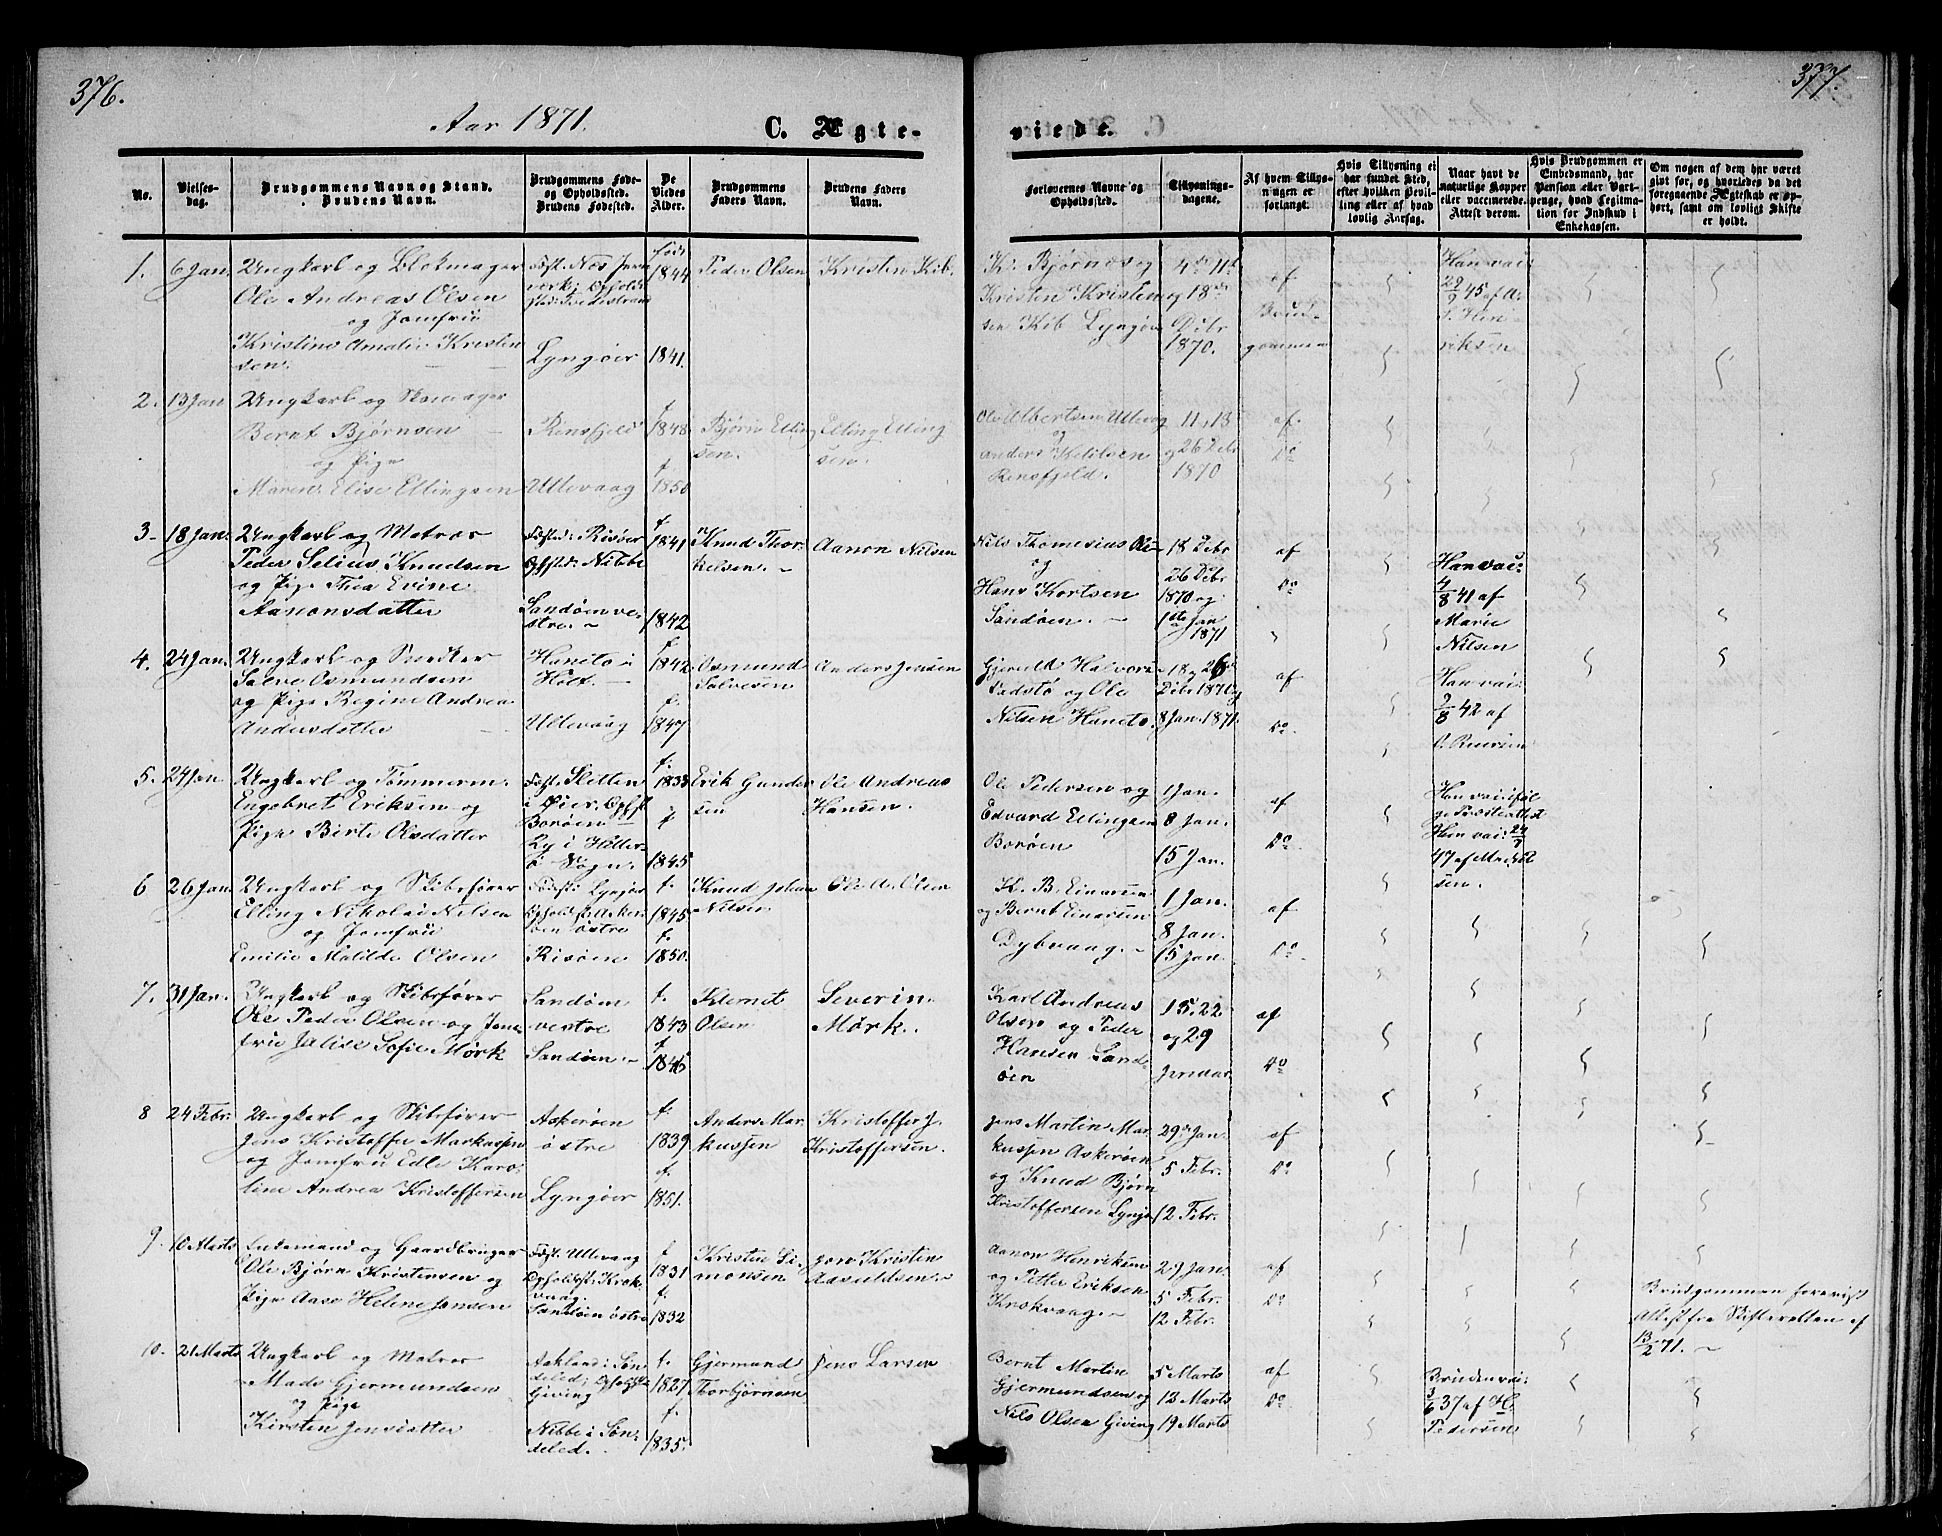 376.
377.
Aar 1871.
C. Ægte-
viede.
No.
Vielses-
dag.
Brudgommens Navn og Stand.
Brudens Navn.
Brudgommens Føde-
og Opholdssted.
Brudens Fødested.
De
Viedes
Alder.
Brudgommens
Faders Navn.
Brudens Faders
Navn.
Forlovernes Navne og
Opholdssted.
Tillysnings-
dagene.
Af hvem Tillys-
ningen er
forlangt.
Hvis Tillysning ei
har fundet Sted,
efter hvilken Bevil-
ling eller af hvad
lovlig Aarsag.
Naar havt de
naturlige Kopper
eller vaccinerede.
Attest derom.
Hvis Brudgommen er
Embedsmand, har
Pension eller Vart-
penge, hvad Legitima-
tion for Indskud i
Enkekassen.
Om nogen af dem har været
gift før, og hvorledes da det
foregaaende Ægteskab er op-
hørt, samt om lovligt Skifte
er holdt.
1. 6 Jan.
Ungkarl og Blokmager
Ole Andreas Olsen
og Jomfru
Kristine Amalie Kristen
sen.
Lyngøer
født
1844
1841.
Peder Olsen
Kristen Kib.
K. Bjørnes og
Kristen Kristen
sen Kib Lyngøer
4de 11te
og 18de
Debr
1870.
af
Brud-
gommen
Han vai
29/9 45 af A.
Hen-
riksen
2. 13 Jan
Ungkarl og Skomager
Bernt Bjørnsen
og Pige
Maren Elise Ellingsen
Rensfjeld
Ullevaag
f.
1848
f.
1850
Bjørn Elling
sen.
Elling Elling
sen.
Ole Albertsen Ullevag
og
Anders Ketilsen
Rensfjeld.
11, 18
og 26 Debr
1870
af
Do
3- 18 Jan.
Ungkarl og Matros
Peder Selius Knudsen
og Pige Thea Evine
Aanonsdatter
Fødsted: Risøer
Ophsted: Nibbe
Sandøen ve-
stre. -
f.
1841
1842
Knud Thor-
kelsen. -
Aanon Nilsen
Nils Thomesius Ole-
og
Hans Kortsen
Sandøen. -
18 Debr
26 Debr
1870 og
1ste Jan
1871
af
Do
Han vai:
4/8 41 af
Marie
Nilsen
4. 24 Jan.
Ungkarl og Snedker
Salve Osmundsen
og Pige Regine Andrea
Andersdatter
Haneto i
Holt. -
Ullevaag
f
1842
f.
1847
Osmund
Salvesen
Anders Jensen
Gjeruld Halvors
Fadstø og Ole
Nilsen Haneto
18 og 26de
Debr 1870 og
8 Jan. 1871.
af
Do
Han vai:
7/8 42 af
5. 24 Jan.
Ungkarl og Tømmerm.
Engebret Eriksen og
Pige Birte Olsdatter
Fødst: Sletten
i Øier. Ophst
Borøen
Ly i Hitter-
ø Sogn.
f.
1833
f
1845
Erik Gunder
sen
Ole Andreas
Hansen.
Ole Pedersen og
Edvard Ellingsen
Borøen
1 Jan.
8 Jan.
15 Jan.
af
Do
Han vai: iføl
ge Præsteattest
Hun vai: 24/7
47 af
sen.
6 26 Jan.
Ungkarl og Skibsfører
Elling Nikolai Nilsen
og Jomfru
Emilie Matilde Olsen
Fødest: Lyngør
Opholdst: Asker-
øen østre
Risøen
f.
1845
f.
1850.
Knud Johan
Nilsen
Ole A. Olsen
K. B. Einarsen
og Bernt Einarsen
Dybvaag. -
1 Jan.
8 Jan.
15 Jan
af
Do
7. 31 Jan.
Ungkarl og Skibsfører
Ole Peder Olsen og Jom-
fru Jalise Sofie Mørk
Sandøen
vestre
Sandøen. -
f.
1843
f
1846
Klemet
Olsen
Severin
Mørk.
Karl Andreas
Olsen og Peder
Hansen Sand-
øen
15. 22
og 29
Januar
af
Do
8 24 Febr.
Ungkarl og Skibsfører
Jens Kristoffer Markussen
og Jomfru Edle Karo-
line Andrea Kristoffersen
Askerøen
østre
Lyngøer
f.
1839
f.
1851.
Anders Mar-
kussen
Kristoffer J.
Kristoffersen.
Jens Martin Mar
kussen Askerøen
og Knud Bjørn
Kristoffersen Lyngø
29de Jan.
5 Febr.
12 Febr.
af
Do
9. 10 Marts
Enkemand og Gaardbruger
Ole Bjørn Kristensen og
Pige Aase Helene Jensen
Fødst: Ullevaag
Opholdst: Krok-
vaag.
Sandøen østre
f
1831
f.
1832
Kristen Si-
monsen
Jens Kristen
Aasuldsen. -
Aanon Henriksen
og Petter Eriksen
Krokvaag. -
29 Jan.
5 Febr.
12 Febr.
af
Do
Brudgommen foreviist
Attest fra Skifteretten af
13/2 71. -
10. 21 Marts
Ungkarl og Matros
Mads Gjermundsen
og Pige
Kirsten Jensdatter
Aakland i Søn-
deled; Opholdst
Giving
Nibbe i Søn-
deled.
f.
1827
f.
1835.
Gjermund
Thorbjørnsen
Jens Larsen
Bernt Martin
Gjermundsen og
Nils Olsen Giving
5 Marts
12 Marts
19 Marts
af
Do
Bruden vai:
3/6 37 af H.
Pedersen